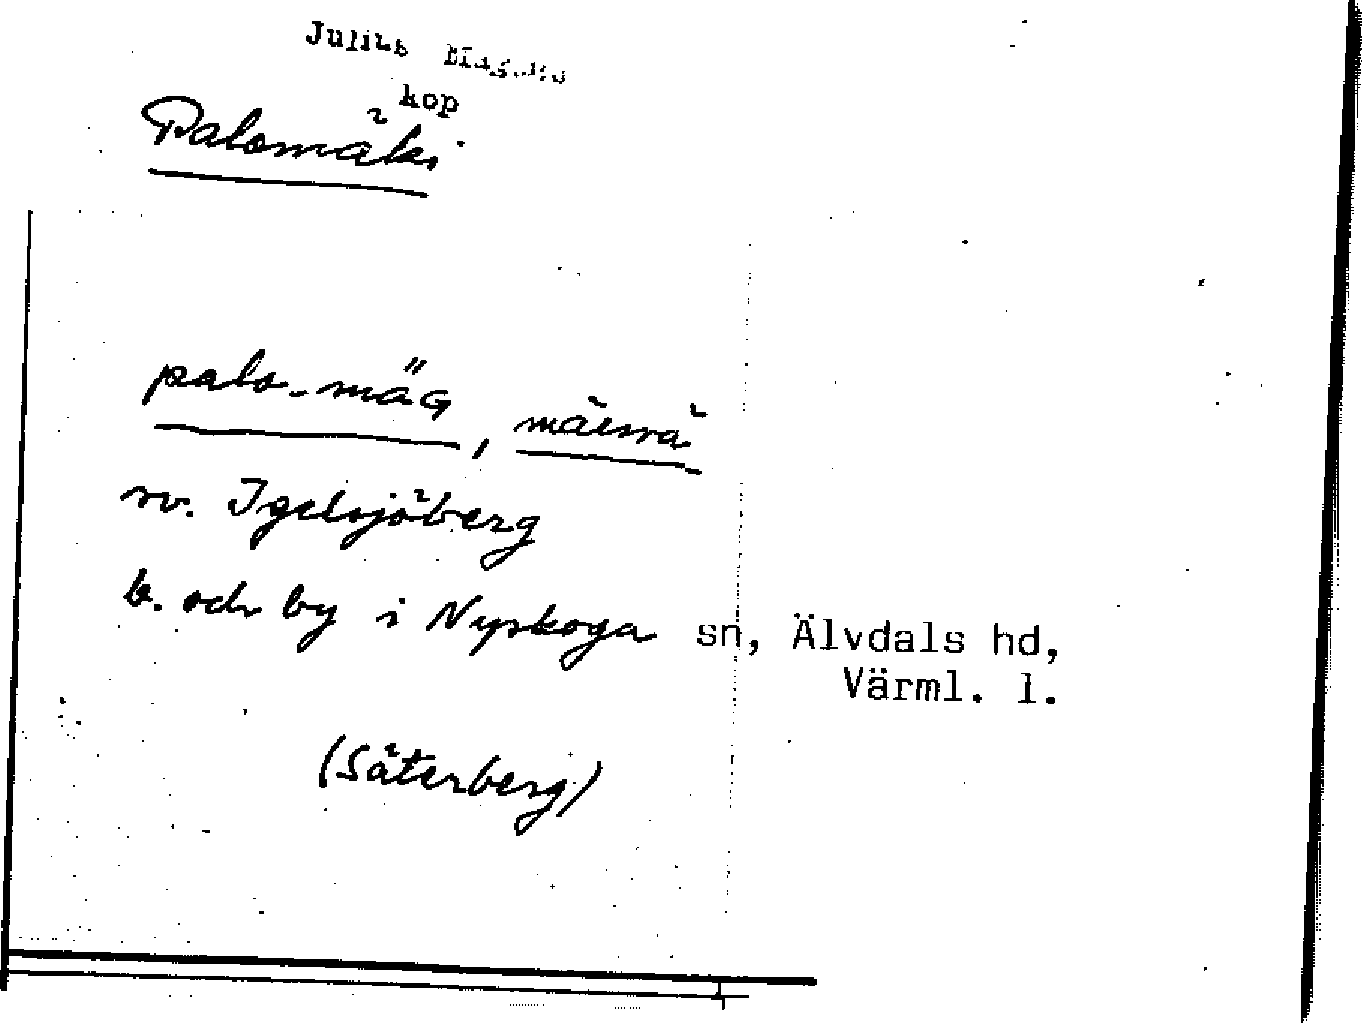 Julius
kop
Palomäki
palo-mäG, mäessä
sv. Igelsjöberg
b. och by i Nyskoga sn, Älvdals hd,
Värml. l.
(Säterberg)